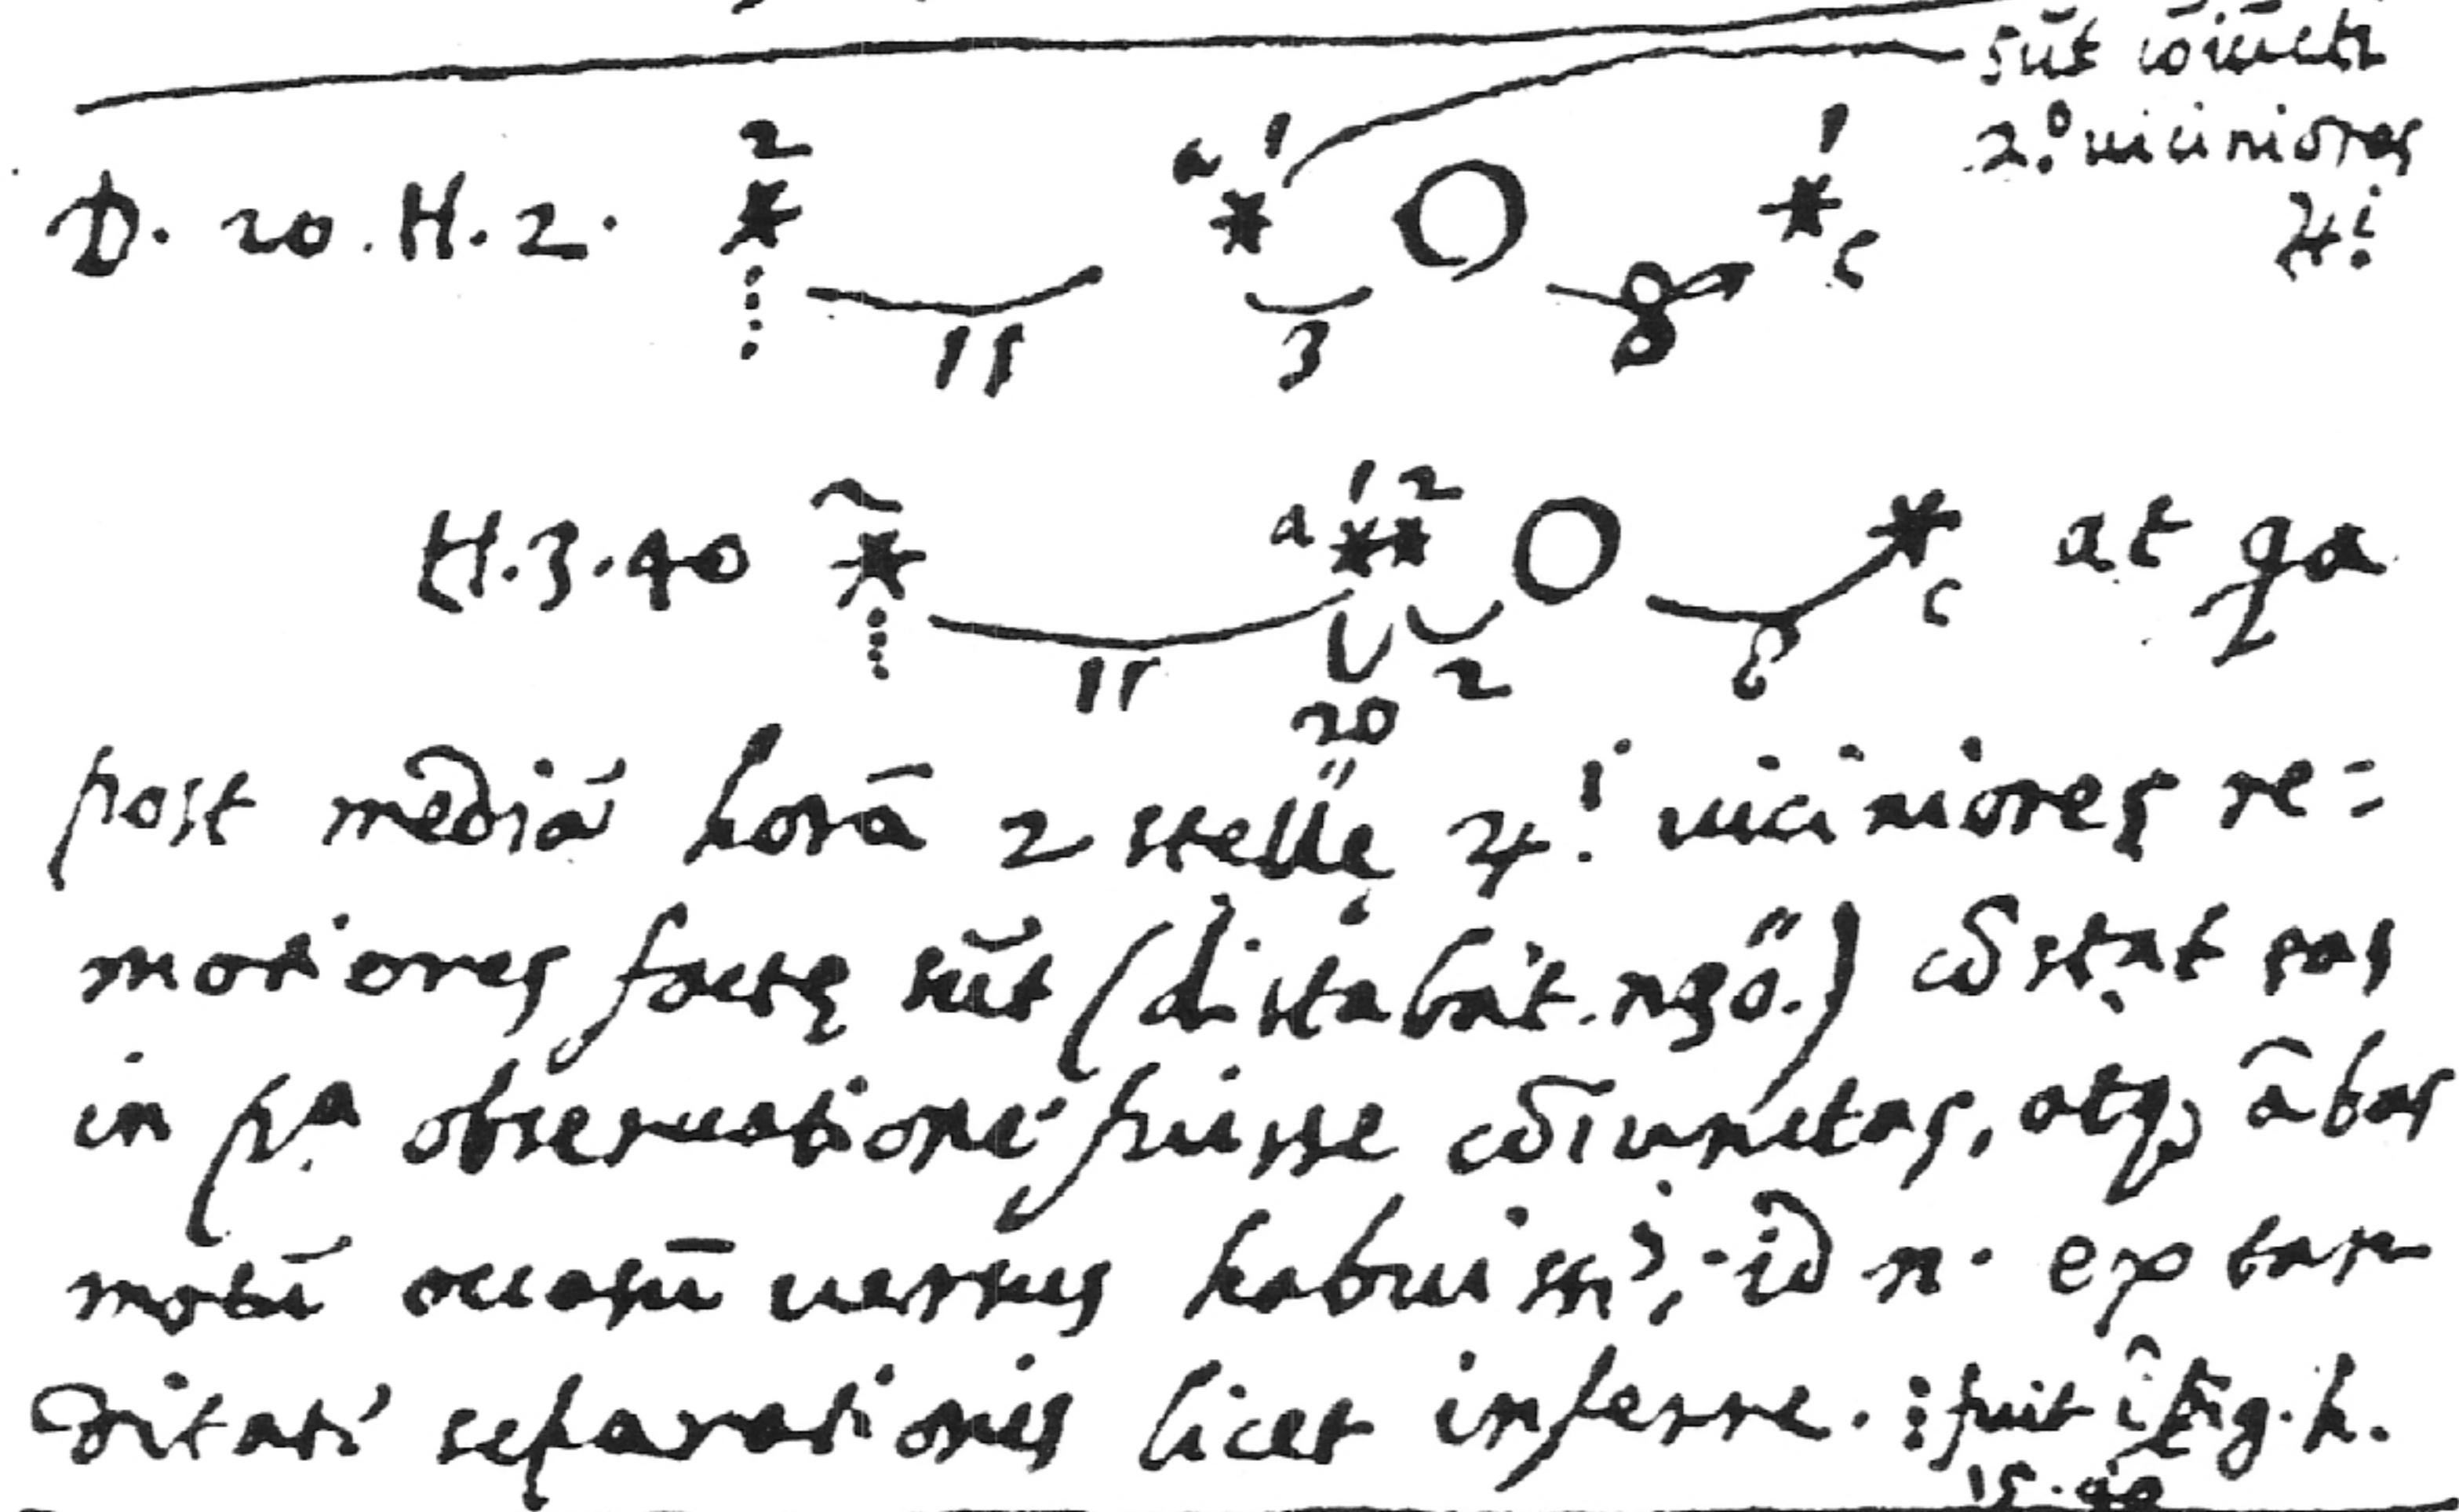 sũt cõiũcti
2.º uiciniores
♃.i
2 a 1 1
D. 20. H. 2. * * O * c
11 3 8
~ 1 2
H. 3. 40 * a ** O * c at qa
11 2 6
20"
post mediã horã 2 stellę ♃.i uiciniores re=
motiores factę sũt (distabãt.
cõstat eas
in p.ª obseruatione fuisse cõiunctas, atq, ãbas
motũ occasũ uersus habuiss; id n. ex tar
ditate separationis licet inferre. : fuit